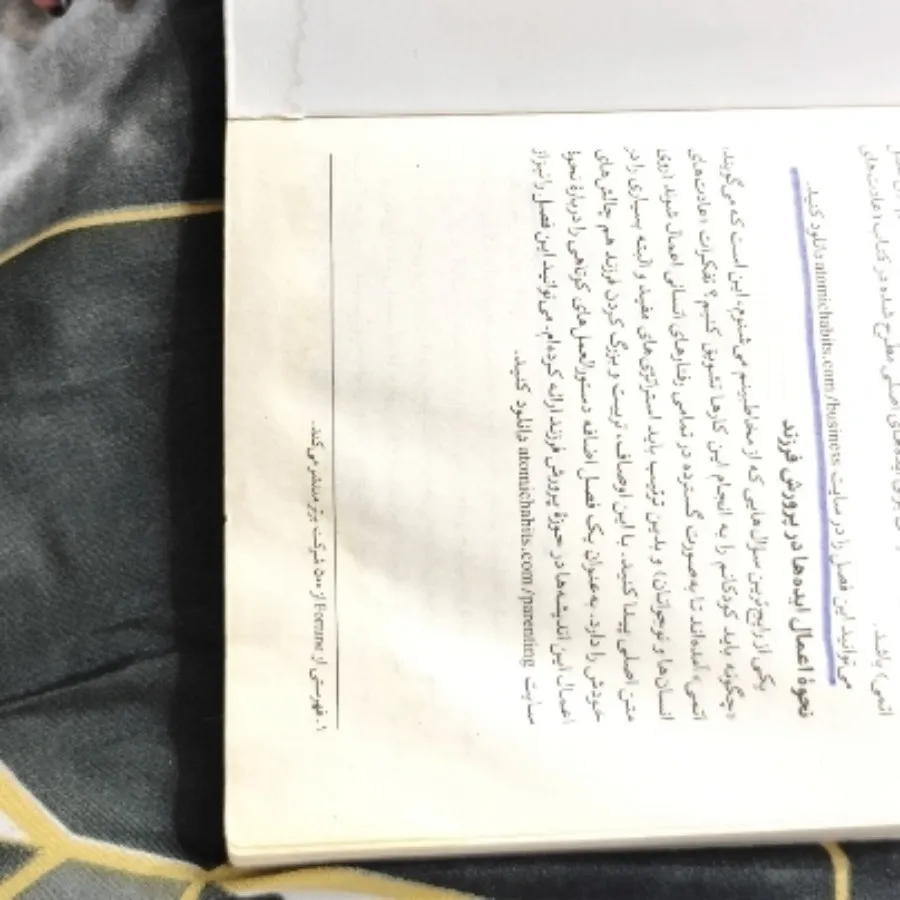 اصلی مطرح شده در کتاب «عادت‌های
اتمی» باشد.
می‌توانید این فصل را در سایت atomichabits.com/business دانلود کنید.
نحوهٔ اعمال ایده‌ها در پرورش فرزند
یکی از رایج‌ترین سؤال‌هایی که از مخاطبینم می‌شنوم، این است که می‌گویند،
«چگونه باید کودکانم را به انجام این کارها تشویق کنیم؟ تفکرات «عادت‌های
اتمی» آمده‌اند تا به‌صورت گسترده در تمامی رفتارهای انسانی اعمال شوند (روی
انسان‌ها و نوجوانان) و بدین ترتیب باید استراتژی‌های مفید و البته بسیاری را در
متن اصلی پیدا کنید. با این اوصاف، تربیت و بزرگ کردن فرزند هم چالش‌های
خودش را دارد. به‌عنوان یک فصل اضافه دستورالعمل‌های کوتاهی را دربارهٔ نحوهٔ
اعمال این اندیشه‌ها در حوزهٔ پرورش فرزند ارائه کرده‌ام. می‌توانید این فصل را نیز از
سایت atomichabits.com/parenting دانلود کنید.
۱. فهرستی از Fortune از ۵۰۰ شرکت برتر منتشر می‌کند.